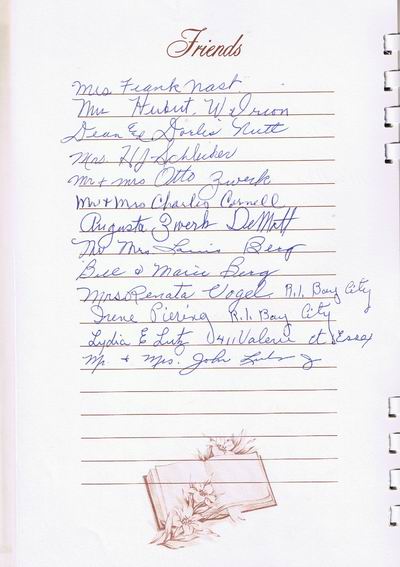 Friends
Mrs Frank Nast
Mrs Hubert W
Dean & Doris Nutt
Mrs. H J Schluber
Mr & Mrs Otto Zwerk
Mr & Mrs Charles Cornell
Augusta Zwerk DeMott
Mrs Berg
Bill & Marie Berg
Mrs Renata Vogel R.1. Bay City
Irene Piering R.1. Bay City
Lydia E Lutz Valerie ct. Essex
Mr. & Mrs. John